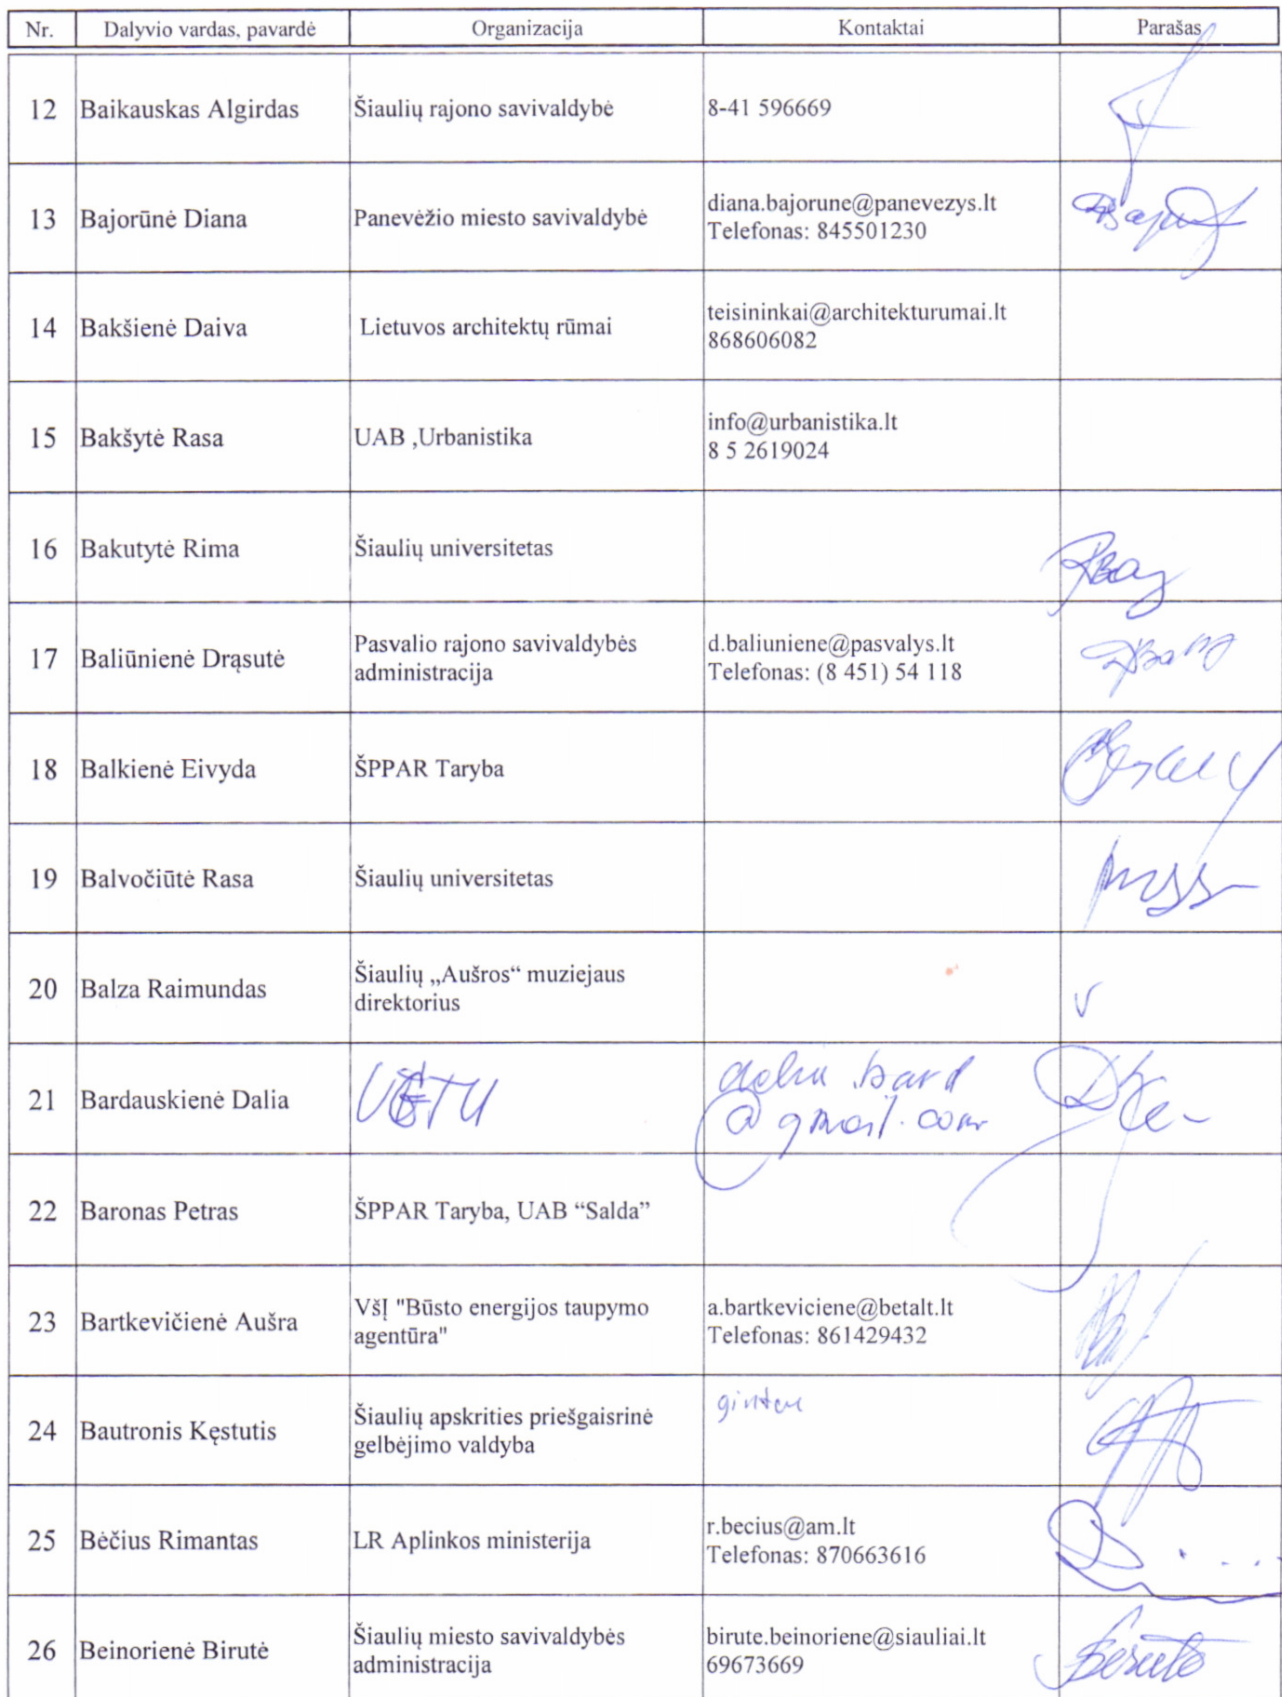 Nr. Dalyvio vardas, pavardė Organizacija Kontaktai Parašas
12 Baikauskas Algirdas Šiaulių rajono savivaldybė 8-41 596669
13 Bajorūnė Diana Panevėžio miesto savivaldybė diana.bajorune@panevezys.lt
Telefonas: 845501230
14 Bakšienė Daiva Lietuvos architektų rūmai teisininkai@architekturumai.lt
868606082
15 Bakšytė Rasa UAB ,Urbanistika info@urbanistika.lt
8 5 2619024
16 Bakutytė Rima Šiaulių universitetas
17 Baliūnienė Drąsutė Pasvalio rajono savivaldybės
administracija
d.baliuniene@pasvalys.lt
Telefonas: (8 451) 54 118
18 Balkienė Eivyda ŠPPAR Taryba
19 Balvočiūtė Rasa Šiaulių universitetas
20 Balza Raimundas Šiaulių „Aušros“ muziejaus
direktorius
21 Bardauskienė Dalia
@gmail.com
22 Baronas Petras ŠPPAR Taryba, UAB “Salda”
23 Bartkevičienė Aušra VšĮ "Būsto energijos taupymo
agentūra"
a.bartkeviciene@betalt.lt
Telefonas: 861429432
24 Bautronis Kęstutis Šiaulių apskrities priešgaisrinė
gelbėjimo valdyba
25 Bėčius Rimantas LR Aplinkos ministerija r.becius@am.lt
Telefonas: 870663616
26 Beinorienė Birutė Šiaulių miesto savivaldybės
administracija
birute.beinoriene@siauliai.lt
69673669